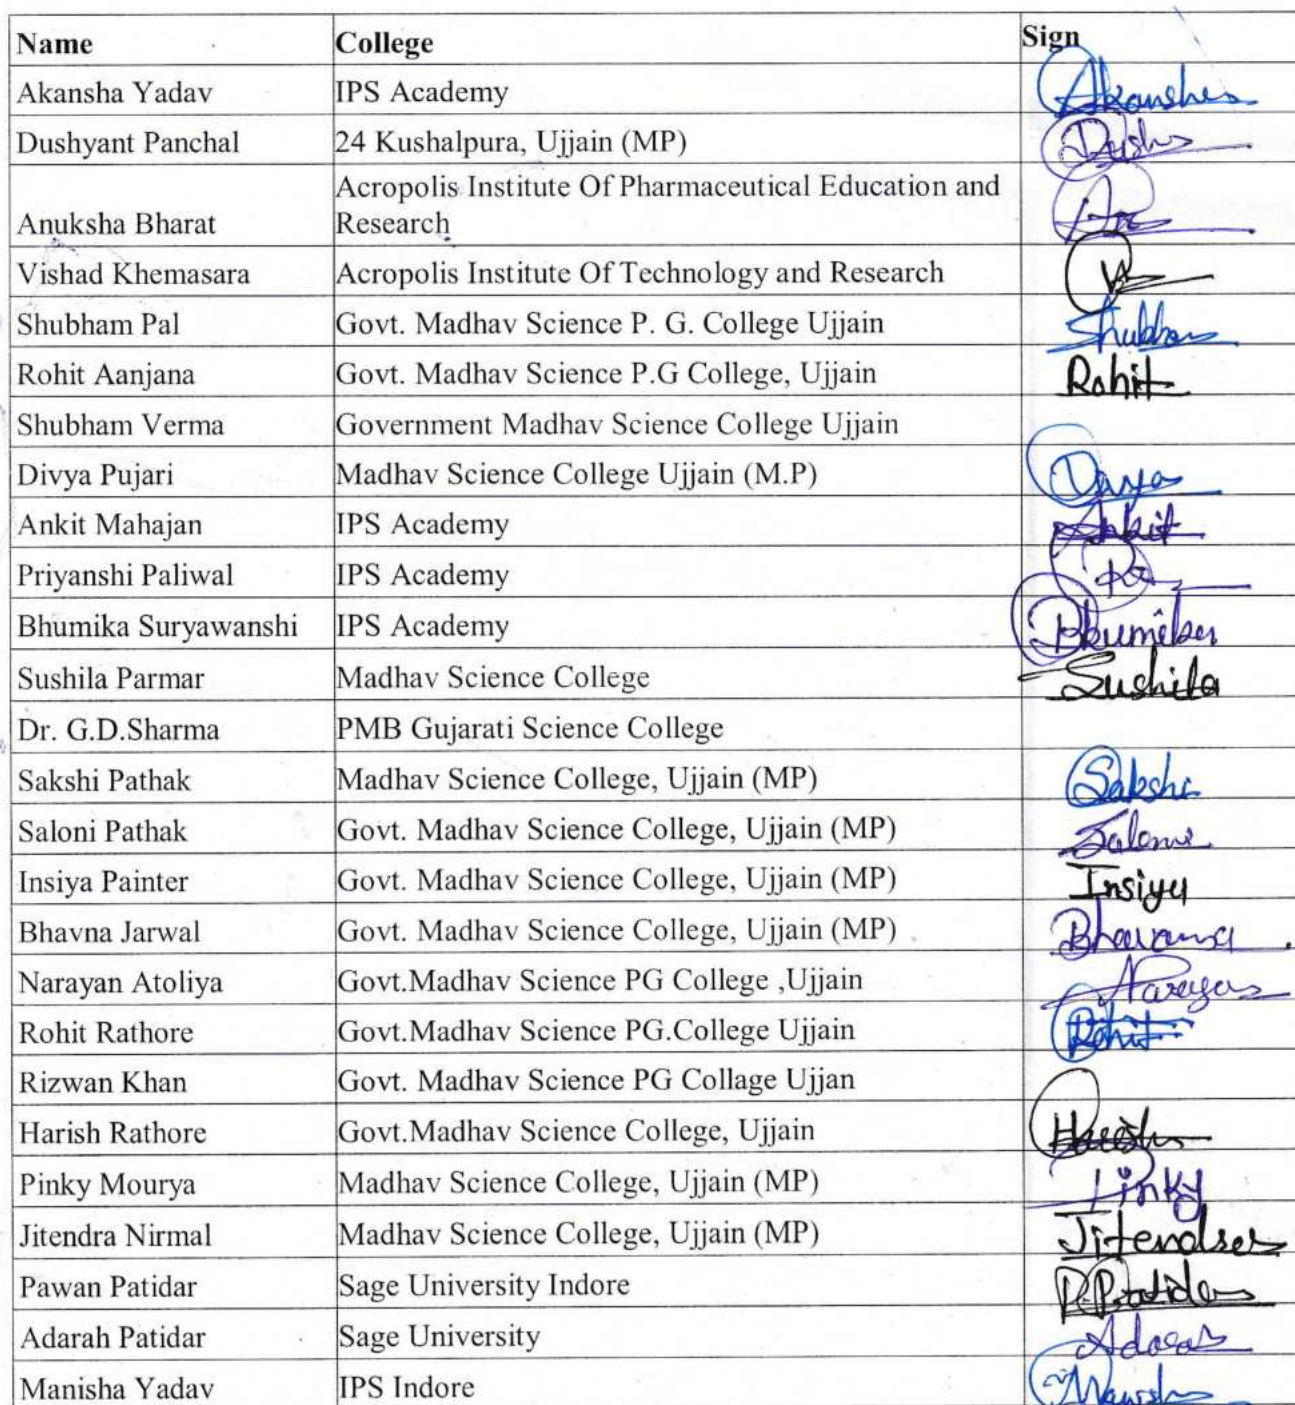 Name College Sign
Akansha Yadav IPS Academy Akansha
Dushyant Panchal 24 Kushalpura, Ujjain (MP)
Acropolis Institute Of Pharmaceutical Education and
Anuksha Bharat Research
Vishad Khemasara Acropolis Institute Of Technology and Research
Shubham Pal Govt. Madhav Science P. G. College Ujjain Shubham
Rohit Aanjana Govt. Madhav Science P.G College, Ujjain Rohit
Shubham Verma Government Madhav Science College Ujjain
Divya Pujari Madhav Science College Ujjain (M.P) Divya
Ankit Mahajan IPS Academy Ankit
Priyanshi Paliwal IPS Academy
Bhumika Suryawanshi IPS Academy Bhumika
Sushila Parmar Madhav Science College Sushila
Dr. G.D.Sharma PMB Gujarati Science College
Sakshi Pathak Madhav Science College, Ujjain (MP) Sakshi
Saloni Pathak Govt. Madhav Science College, Ujjain (MP) Saloni
Insiya Painter Govt. Madhav Science College, Ujjain (MP) Insiya
Bhavna Jarwal Govt. Madhav Science College, Ujjain (MP) Bhavana
Narayan Atoliya Govt.Madhav Science PG College ,Ujjain Narayan
Rohit Rathore Govt.Madhav Science PG.College Ujjain Rohit
Rizwan Khan Govt. Madhav Science PG Collage Ujjan
Harish Rathore Govt.Madhav Science College, Ujjain Harish
Pinky Mourya Madhav Science College, Ujjain (MP) Pinky
Jitendra Nirmal Madhav Science College, Ujjain (MP) Jitendra
Pawan Patidar Sage University Indore P.Patidar
Adarah Patidar Sage University Adarsh
Manisha Yadav IPS Indore Manisha